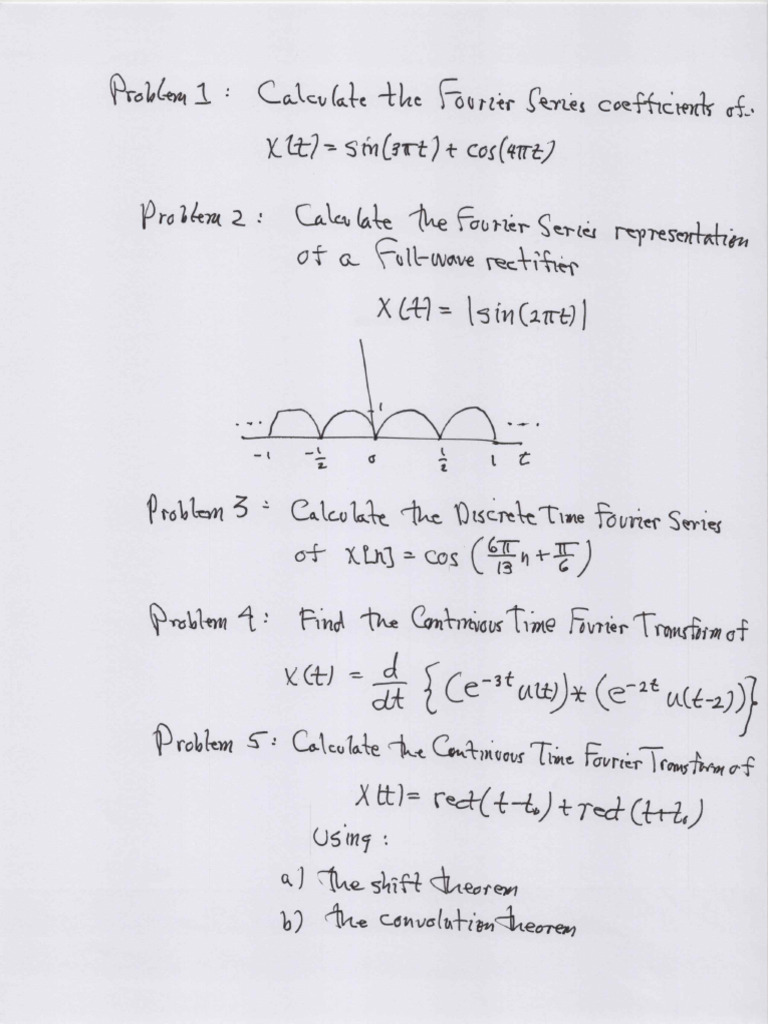 Problem 1 : Calculate the Fourier Series coefficients of..
X(t) = sin(3πt) + cos(4πt)
Problem 2 : Calculate the Fourier Series representation
of a Full-wave rectifier
X(t) = |sin(2πt)|
1
... ...
-1 -1/2 0 1/2 1 t
Problem 3 : Calculate the Discrete Time Fourier Series
of X[n] = cos (6π/13 n + π/6)
Problem 4 : Find the Continuous Time Fourier Transform of
X(t) = d/dt {(e^-3t u(t)) * (e^-2t u(t-2))}
Problem 5 : Calculate the Continuous Time Fourier Transform of
X(t) = rect(t-t₀) + rect(t+t₀)
Using :
a) the shift theorem
b) the convolution theorem